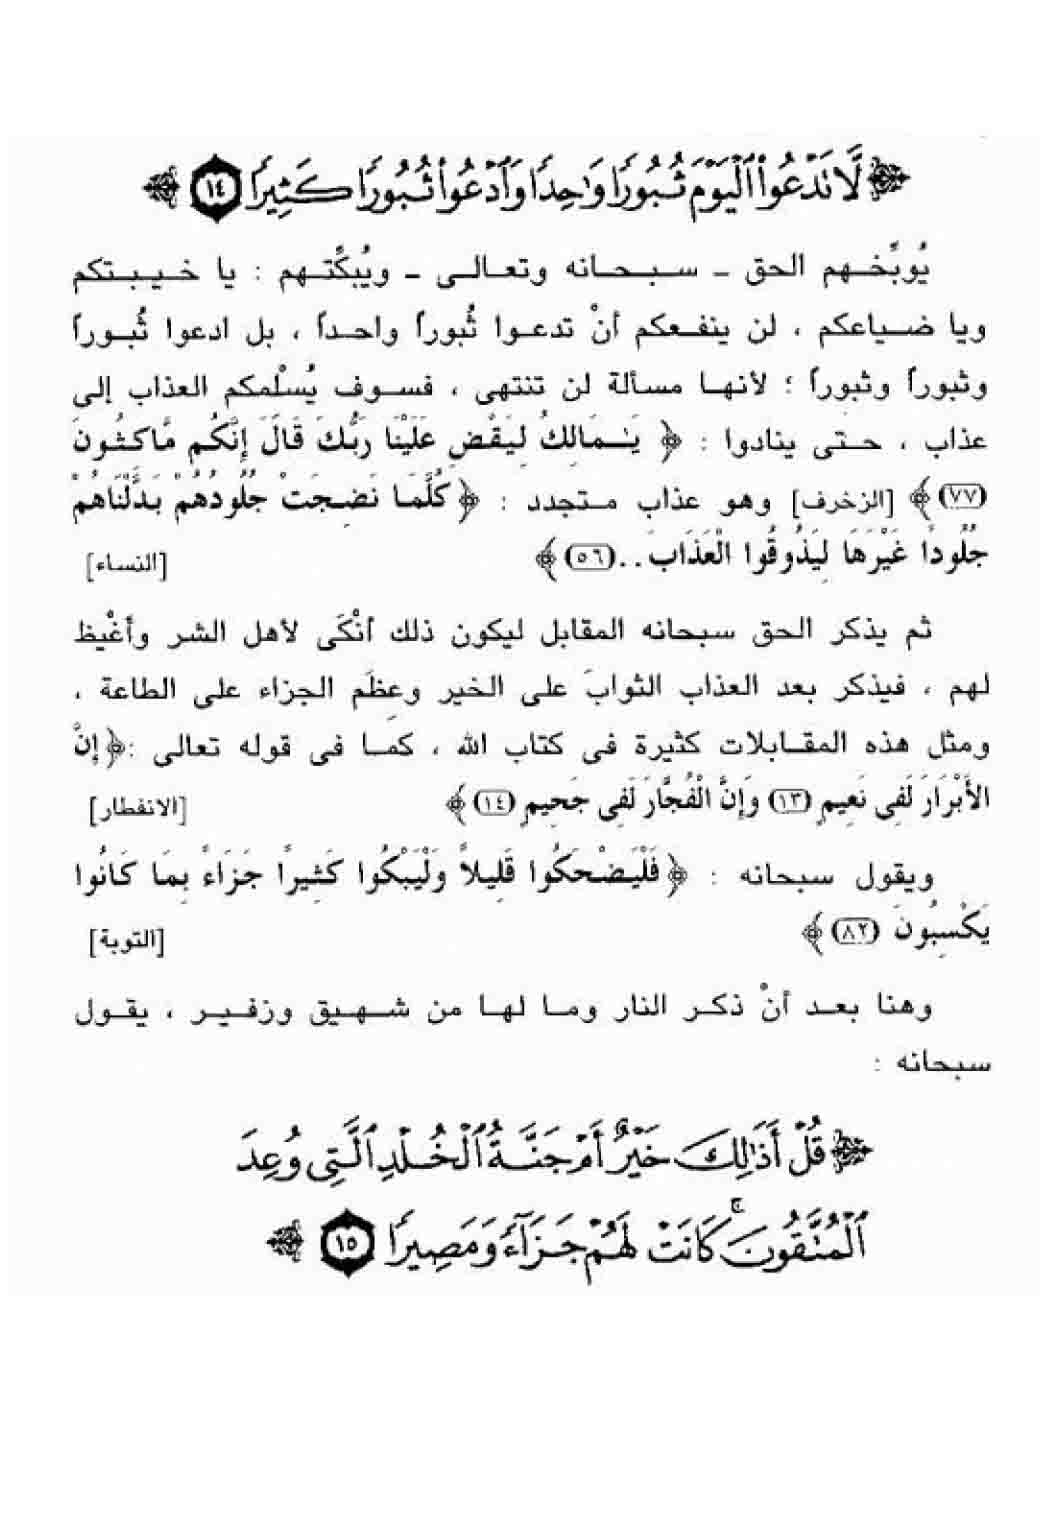 ﴿ لَّا تَدْعُوا۟ ٱلْيَوْمَ ثُبُورًا وَٰحِدًا وَٱدْعُوا۟ ثُبُورًا كَثِيرًا ١٤ ﴾
يُوبِّخهم الحق - سبحانه وتعالى - ويُبكِّتهم : يا خيبتكم
ويا ضياعكم ، لن ينفعكم أنْ تدعوا ثُبوراً واحداً ، بل ادعوا ثُبوراً
وثبوراً وثبوراً ؛ لأنها مسألة لن تنتهى ، فسوف يُسلْمكم العذاب إلى
عذاب ، حتى ينادوا : ﴿ يَـٰمَالِكُ لِيَقْضِ عَلَيْنَا رَبُّكَ قَالَ إِنَّكُم مَّاكِثُونَ
(٧٧) ﴾ [الزخرف] وهو عذاب متجدد : ﴿ كُلَّمَا نَضِجَتْ جُلُودُهُمْ بَدَّلْنَاهُمْ
جُلُودًا غَيْرَهَا لِيَذُوقُوا الْعَذَابَ..(٥٦) ﴾ [النساء]
ثم يذكر الحق سبحانه المقابل ليكون ذلك أنْكَى لأهل الشر وأغْيظ
لهم ، فيذكر بعد العذاب الثوابَ على الخير وعِظَم الجزاء على الطاعة ،
ومثل هذه المقابلات كثيرة فى كتاب الله ، كما فى قوله تعالى :﴿ إِنَّ
الأَبْرَارَ لَفِى نَعِيمٍ (١٣) وَإِنَّ الْفُجَّارَ لَفِى جَحِيمٍ (١٤) ﴾ [الانفطار]
ويقول سبحانه : ﴿ فَلْيَضْحَكُوا قَلِيلاً وَلْيَبْكُوا كَثِيراً جَزَاءً بِمَا كَانُوا
يَكْسِبُونَ (٨٢) ﴾ [التوبة]
وهنا بعد أنْ ذكر النار وما لها من شهيق وزفير ، يقول
سبحانه :
﴿ قُلْ أَذَٰلِكَ خَيْرٌ أَمْ جَنَّةُ ٱلْخُلْدِ ٱلَّتِى وُعِدَ
ٱلْمُتَّقُونَ ۚ كَانَتْ لَهُمْ جَزَآءً وَمَصِيرًا ١٥ ﴾